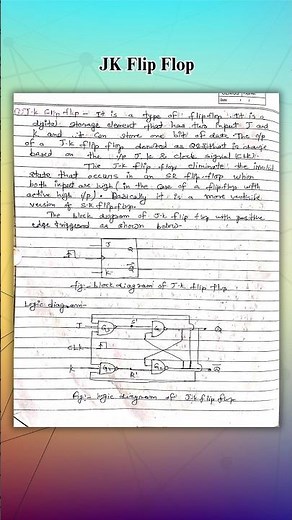 JK Flip Flop
J-k flip flop - It is a type of flipflop. It is a
digital storage element that has two input J and
K and it can store one bit of data. The o/p
of a J-k flip flop denoted as Q that is change
based on the i/p J, k & clock signal (CLK).
The J-k flip flop eliminate the invalid
state that occurs in an SR flip-flop when
both input are high (in the case of a flipflop with
active high i/p). Basically it is a more versatile
version of S-R flipflop.
The block diagram of J-k flip flop with positive
edge triggered as shown below-
J
Q
K
Q̅
fig:- block diagram of J-k flip flop
Logic diagram-
J
S'
Q
CLK
K
R'
Q̅
Fig:- logic diagram of J-k flip flop